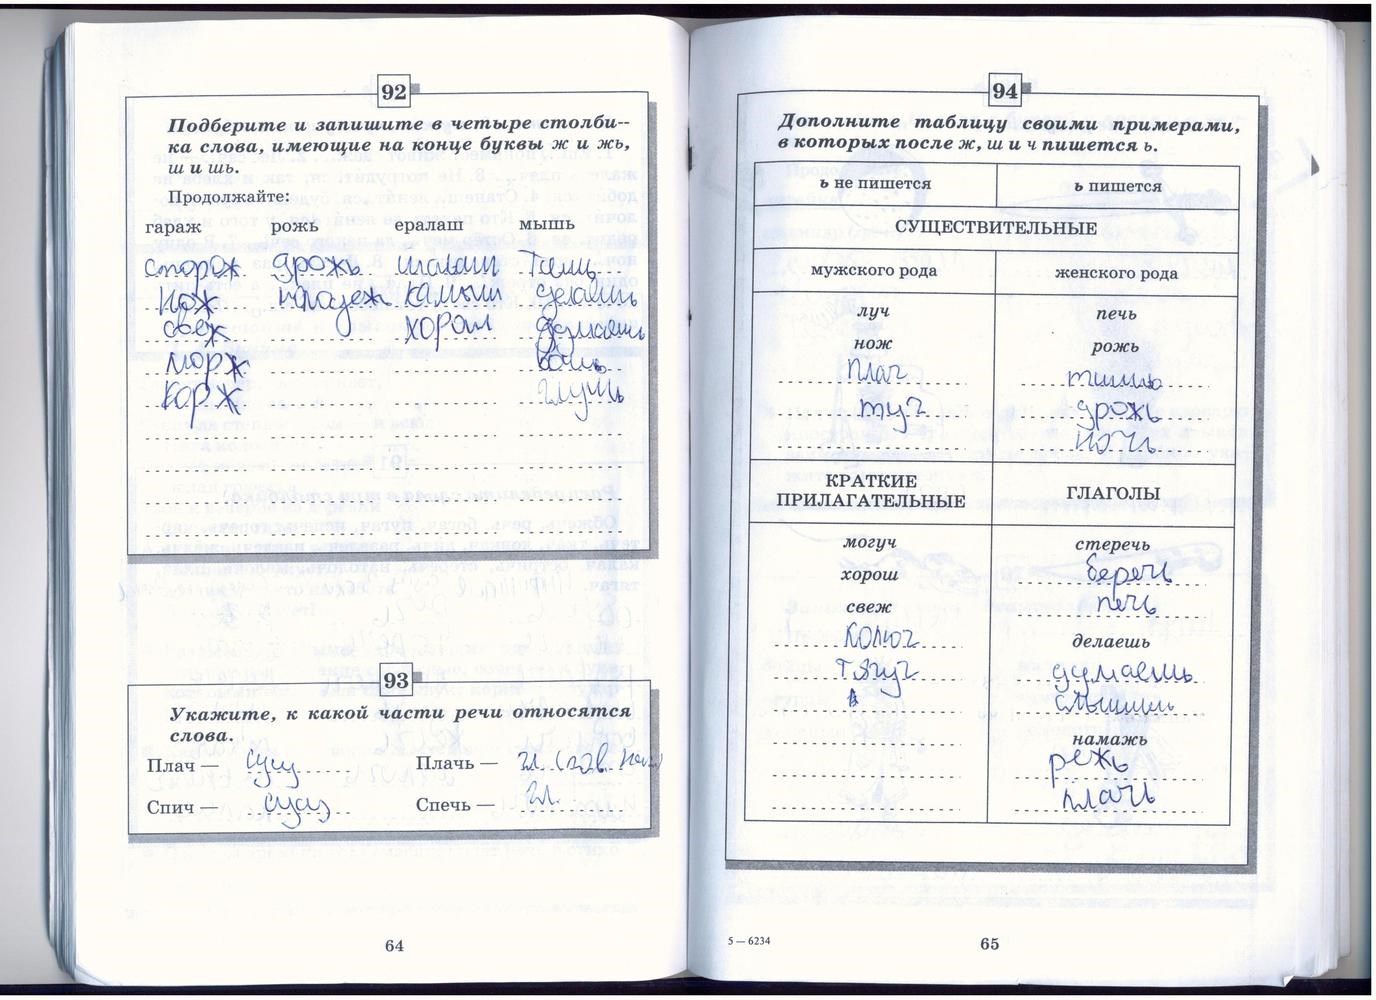 92
Подберите и запишите в четыре столби--
ка слова, имеющие на конце буквы ж и жь,
ш и шь.
Продолжайте:
гараж рожь ералаш мышь
сторож дрожь шалаш
нож камыш сделаешь
свеж хорош думаешь
морж
корж глушь
93
Укажите, к какой части речи относятся
слова.
Плач — сущ Плачь — гл.
Спич — сущ Спечь — гл.
64
94
Дополните таблицу своими примерами,
в которых после ж, ш и ч пишется ь.
ь не пишется ь пишется
СУЩЕСТВИТЕЛЬНЫЕ
мужского рода женского рода
луч печь
нож рожь
плач тишь
туч дрожь
ночь
КРАТКИЕ
ПРИЛАГАТЕЛЬНЫЕ ГЛАГОЛЫ
могуч стеречь
хорош беречь
свеж печь
колюч делаешь
тягуч думаешь
намажь
режь
плачь
5 — 6234
65